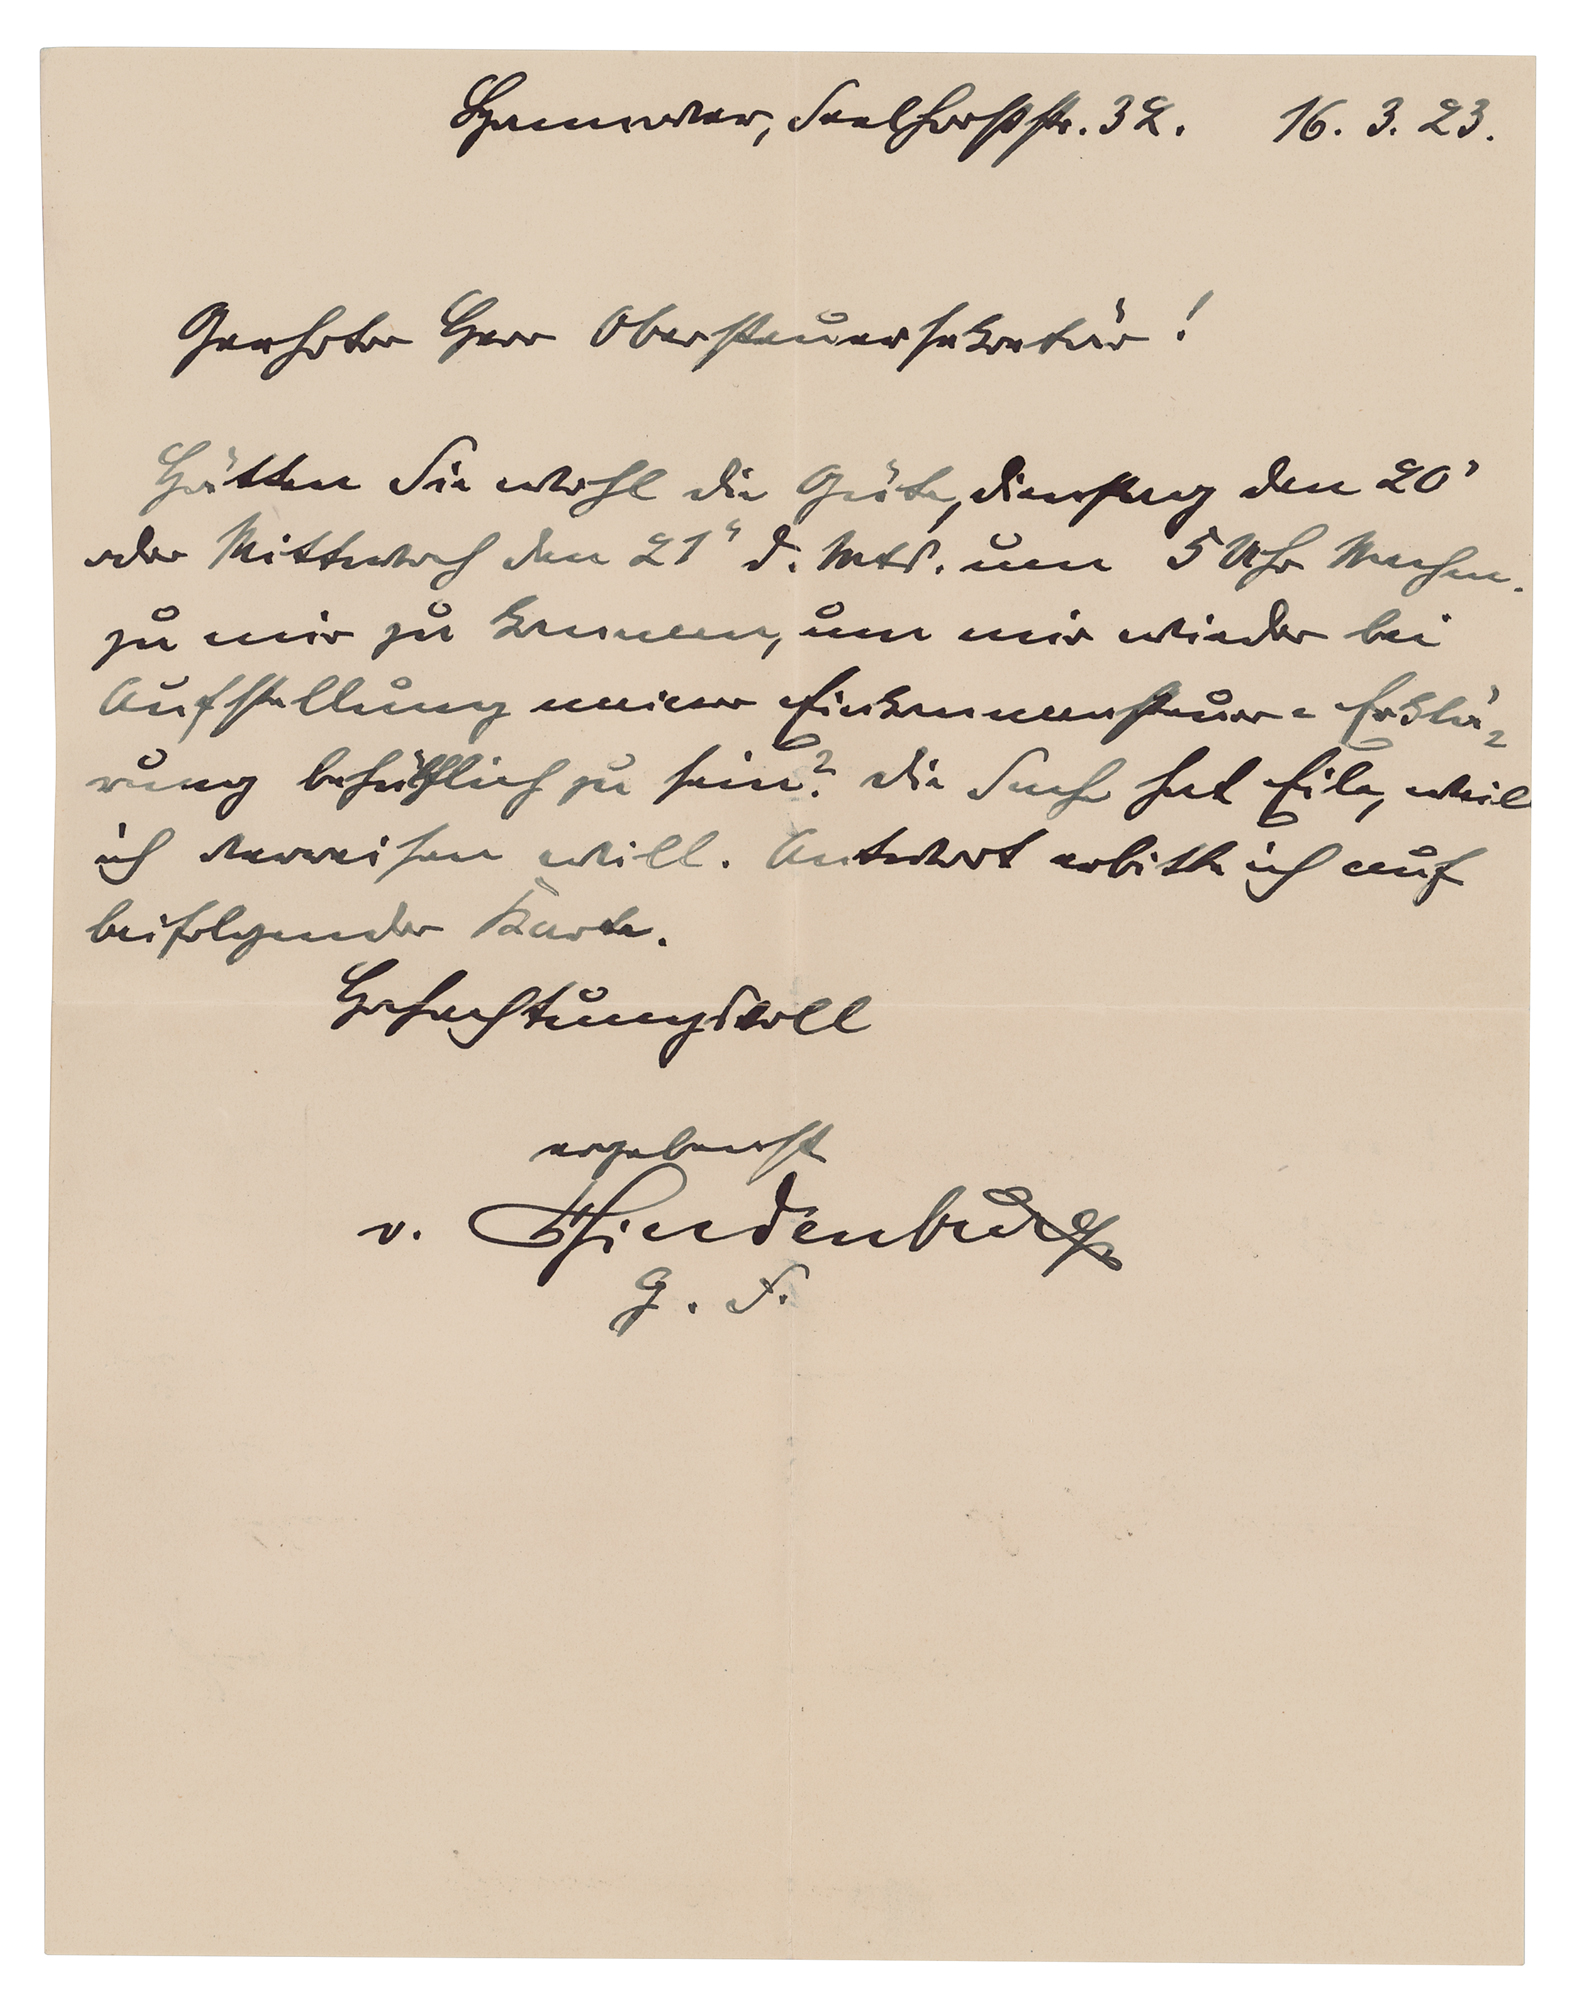 Hannover, Seelhorststr. 32. 16. 3. 23.
Geehrter Herr Obersteuersekretär!
Hätten Sie wohl die Güte, Dienstag den 20'
oder Mittwoch den 21" d. Mts. um 5 Uhr Nachm.
zu mir zu kommen, um mir wieder bei
Aufstellung meiner Einkommensteuer-Erklä-
rung behülflich zu sein? Die Sache hat Eile, weil
ich verreisen will. Antwort erbitte ich auf
beifolgender Karte.
Hochachtungsvoll
ergebenst
v. Hindenburg
G. F.